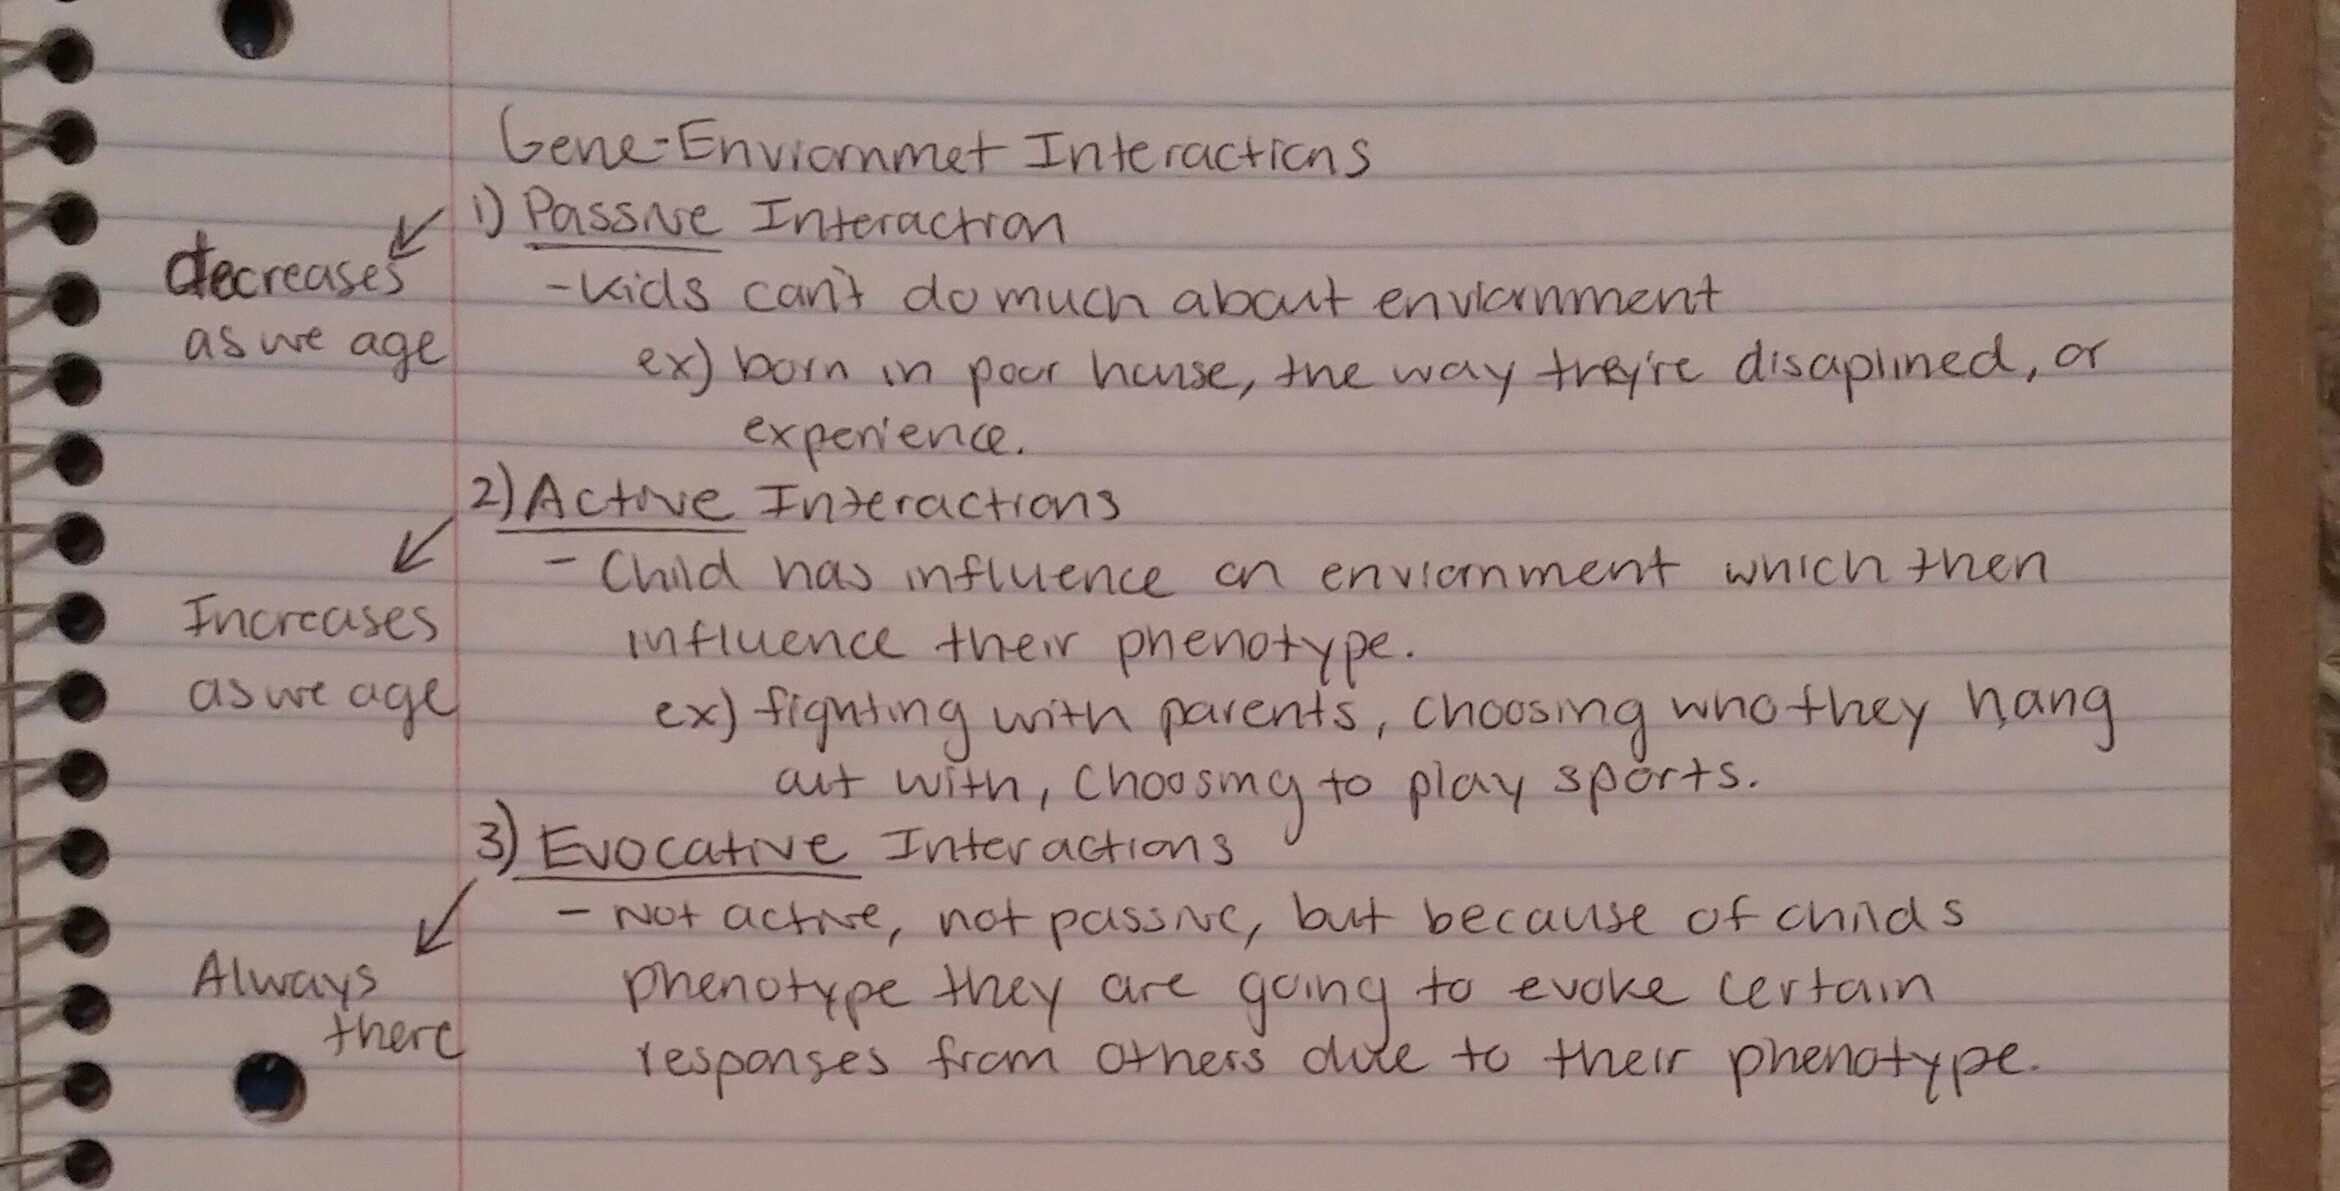 Gene-Enviornmet Interactions
1) Passive Interaction
decreases
as we age
- Kids can't do much about enviornment
ex) born in poor house, the way they're disaplined, or
experience.
2) Active Interactions
Increases
as we age
- Child has influence on enviornment which then
influence their phenotype.
ex) fighting with parents, choosing who they hang
out with, choosing to play sports.
3) Evocative Interactions
Always
there
- Not active, not passive, but because of childs
phenotype they are going to evoke certain
responses from others due to their phenotype.